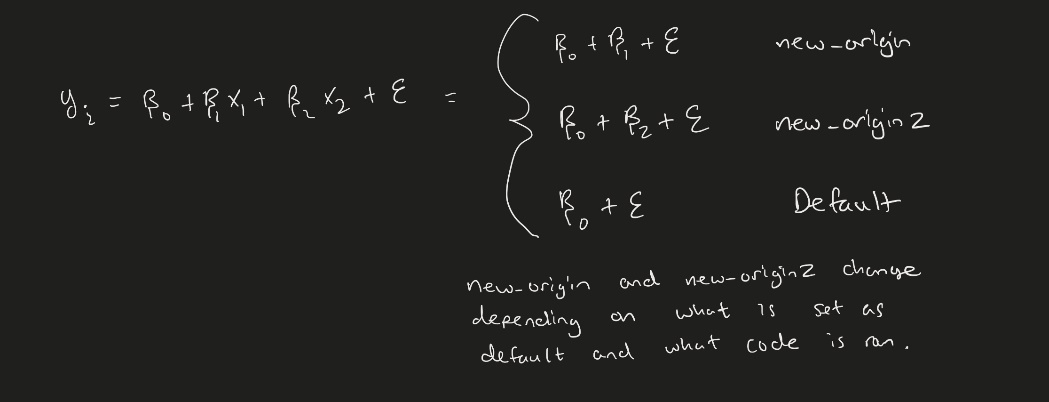 yᵢ = β₀ + β₁x₁ + β₂x₂ + ε = {
β₀ + β₁ + ε new_origin
β₀ + β₂ + ε new_origin2
β₀ + ε Default
new_origin and new_origin2 change
depending on what is set as
default and what code is ran.